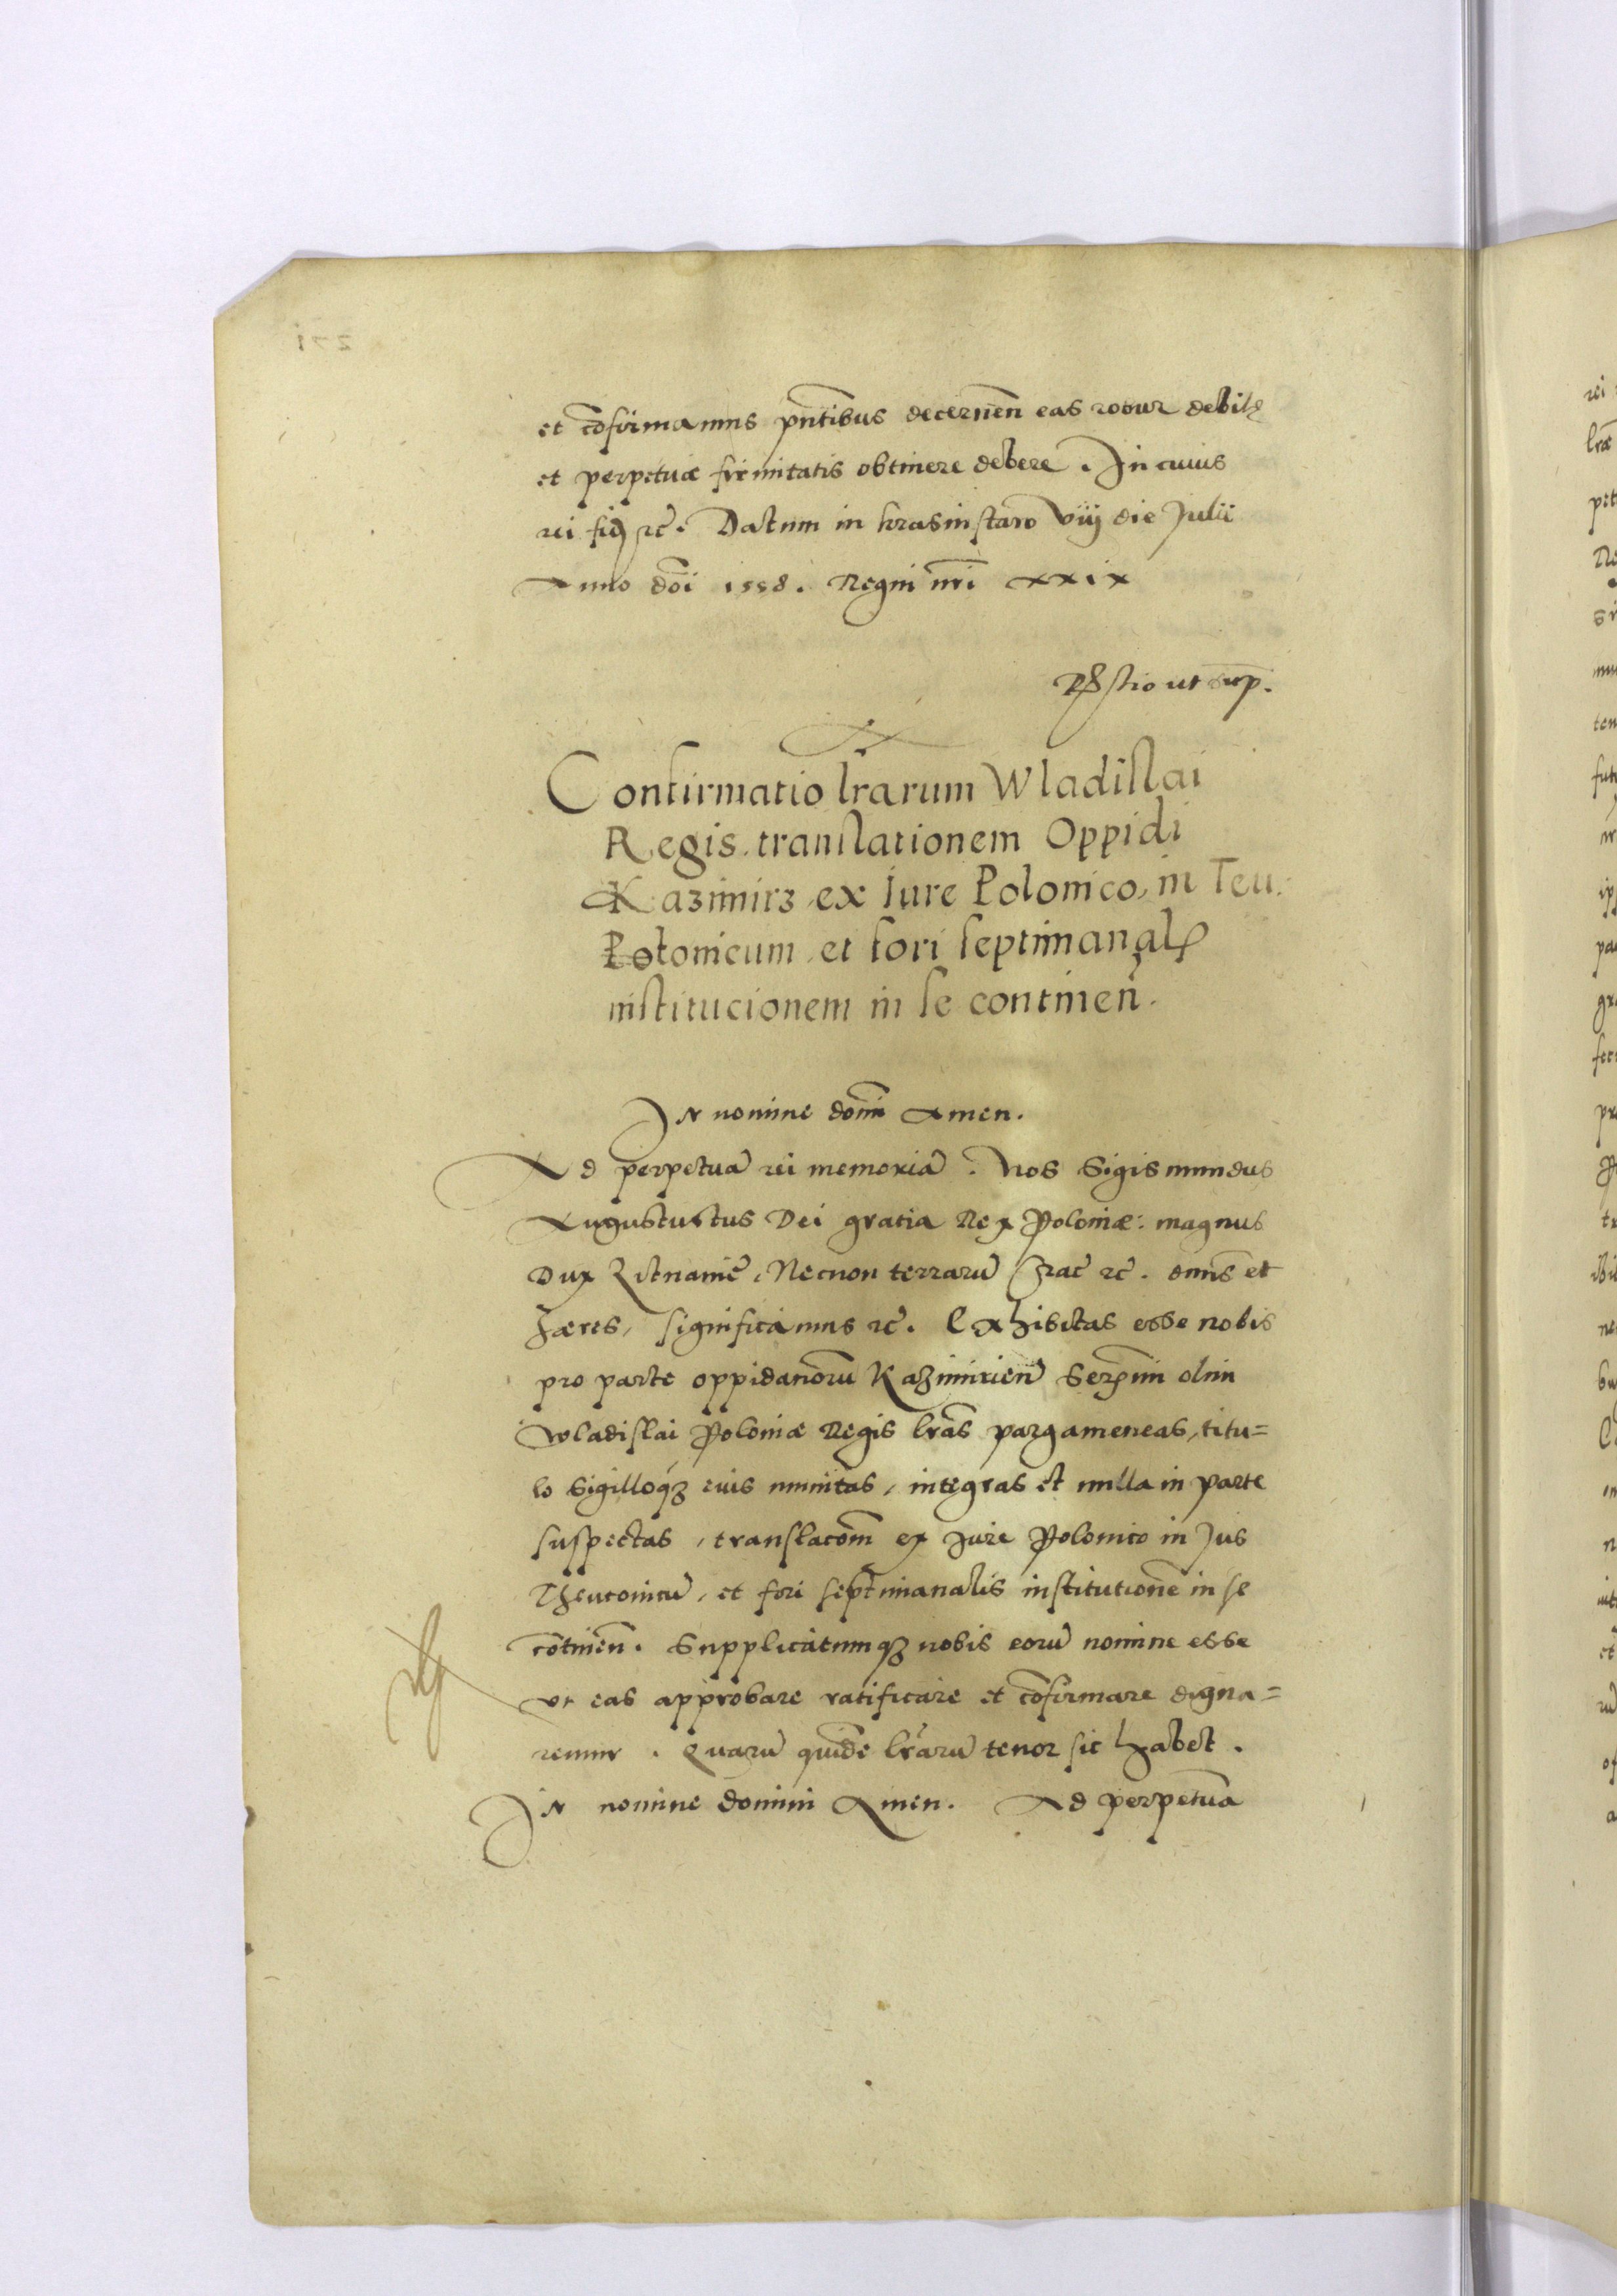 et cõfirmamus pñtibus decernẽn eas robur debitę
et perpetuæ firmitatis obtinere debere. In cuius
rei fid ꝛc̃. Datum in krasnistaw viij die Julii
Anno dõi 1558. Regni nr̃i xxix
ut sup.
Confirmatio lrarum Wladislai
Regis translationem Oppidi
Kazimirz ex Iure Polonico, in Teu.
Potonicum et fori septimanal
institucionem in se continen̄.
In nomine dom̃i Amen.
Ad perpetuã rei memoriã. Nos Sigismundus
Augustustus Dei gratia Rex Poloniæ: magnus
Dux Lituaniẽ, Necnon terrarũ Crac̃ ꝛc̃. dñus et
hæres, significamus ꝛc̃. Exhibitas esse nobis
pro parte oppidanorũ Kazimirien̄ Serm̃i olim
Wladislai Poloniæ Regis lrãs pargameneas, titu=
lo Sigilloqꝫ eius munitas, integras et nulla in parte
suspectas, translacõm ex Jure Polonico in Jus
Theutonicũ, et fori septimanalis institutionẽ in se
cõtinẽn. Supplicatumqꝫ nobis eorũ nomine esse
ut eas approbare ratificare et cõfirmare digna=
remur. Quarũ quidẽ lrarũ tenor sic habet.
In nomine domini Amen. Ad perpetuã